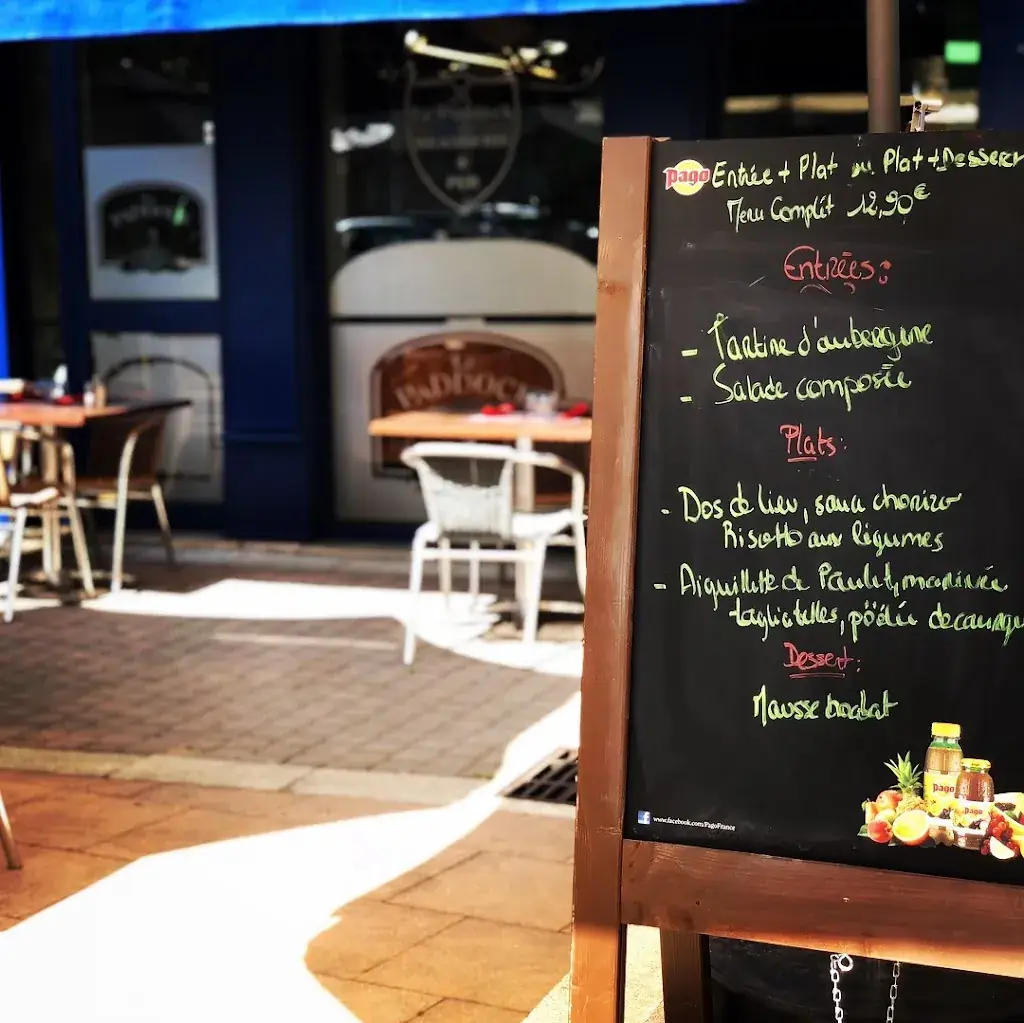 pago Entrée + Plat ou Plat + Dessert
Menu Complèt 12,90€
Entrées:
- Tartine d'aubergine
- Salade composée
Plats:
- Dos de lieu, sauce chorizo
Risotto aux légumes
- Aiguillette de Poulet, marinée
tagliatelles, pöélée de courge
Dessert:
Mousse chocolat
pago
pago
www.facebook.com/PagoFrance
Le
PADDOCK
PADDOCK
&
PUB